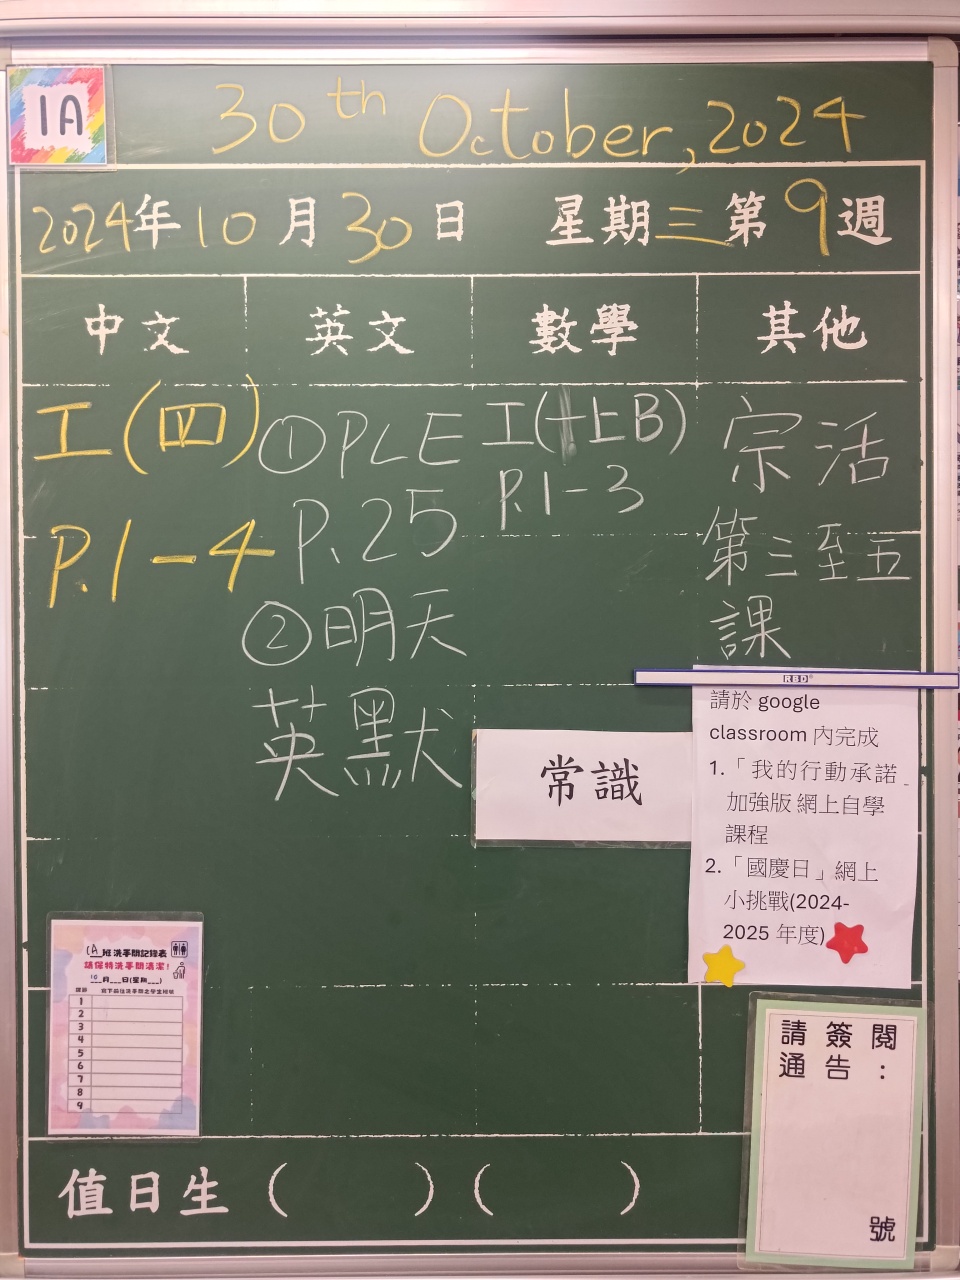 1A
30th October, 2024
2024年10月30日 星期三 第9週
中文 英文 數學 其他
工(四)
P.1-4
①PLE
P.25
②明天
英默
工(一上B)
P.1-3
宗活
第三至五
課
RBD®
常識
請於 google
classroom 內完成
1.「我的行動承諾
加強版 網上自學
課程
2.「國慶日」網上
小挑戰(2024-
2025 年度)
(A 班洗手間記錄表
請保持洗手間清潔!
10月__日(星期__)
1
2
3
4
5
6
7
8
9
請簽閱
通告:
號
值日生 ( ) ( )